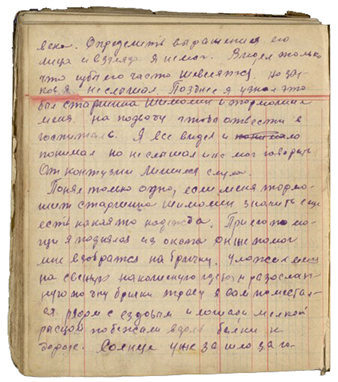 ясно. Определить выражения его
лица и взгляда я не мог. Видел только
что губы его часто шевелятся. но зву-
ков я не слышал. Позднее я узнал это
был старшина Шиломин и тормошил
меня. на подводу чтобы отвезти в
госпиталь. Я все видел и понимало
понимал но не слышал и не мог говорить
От контузии лишился слуха.
Понял только одно, если меня тормо-
шит старшина Шиломин значит еще
есть какая то надежда. При его по-
мощи я поднялся из окопа он же помог
мне взобраться на бричку. Уложил меня
на свежую накошенную густую разослан-
ную по дну брички траву я сам поместил-
ся рядом с ездовым и лошади мелкой
рысцой побежали вдоль балки к
дороге. Солнце уже зашло за го-